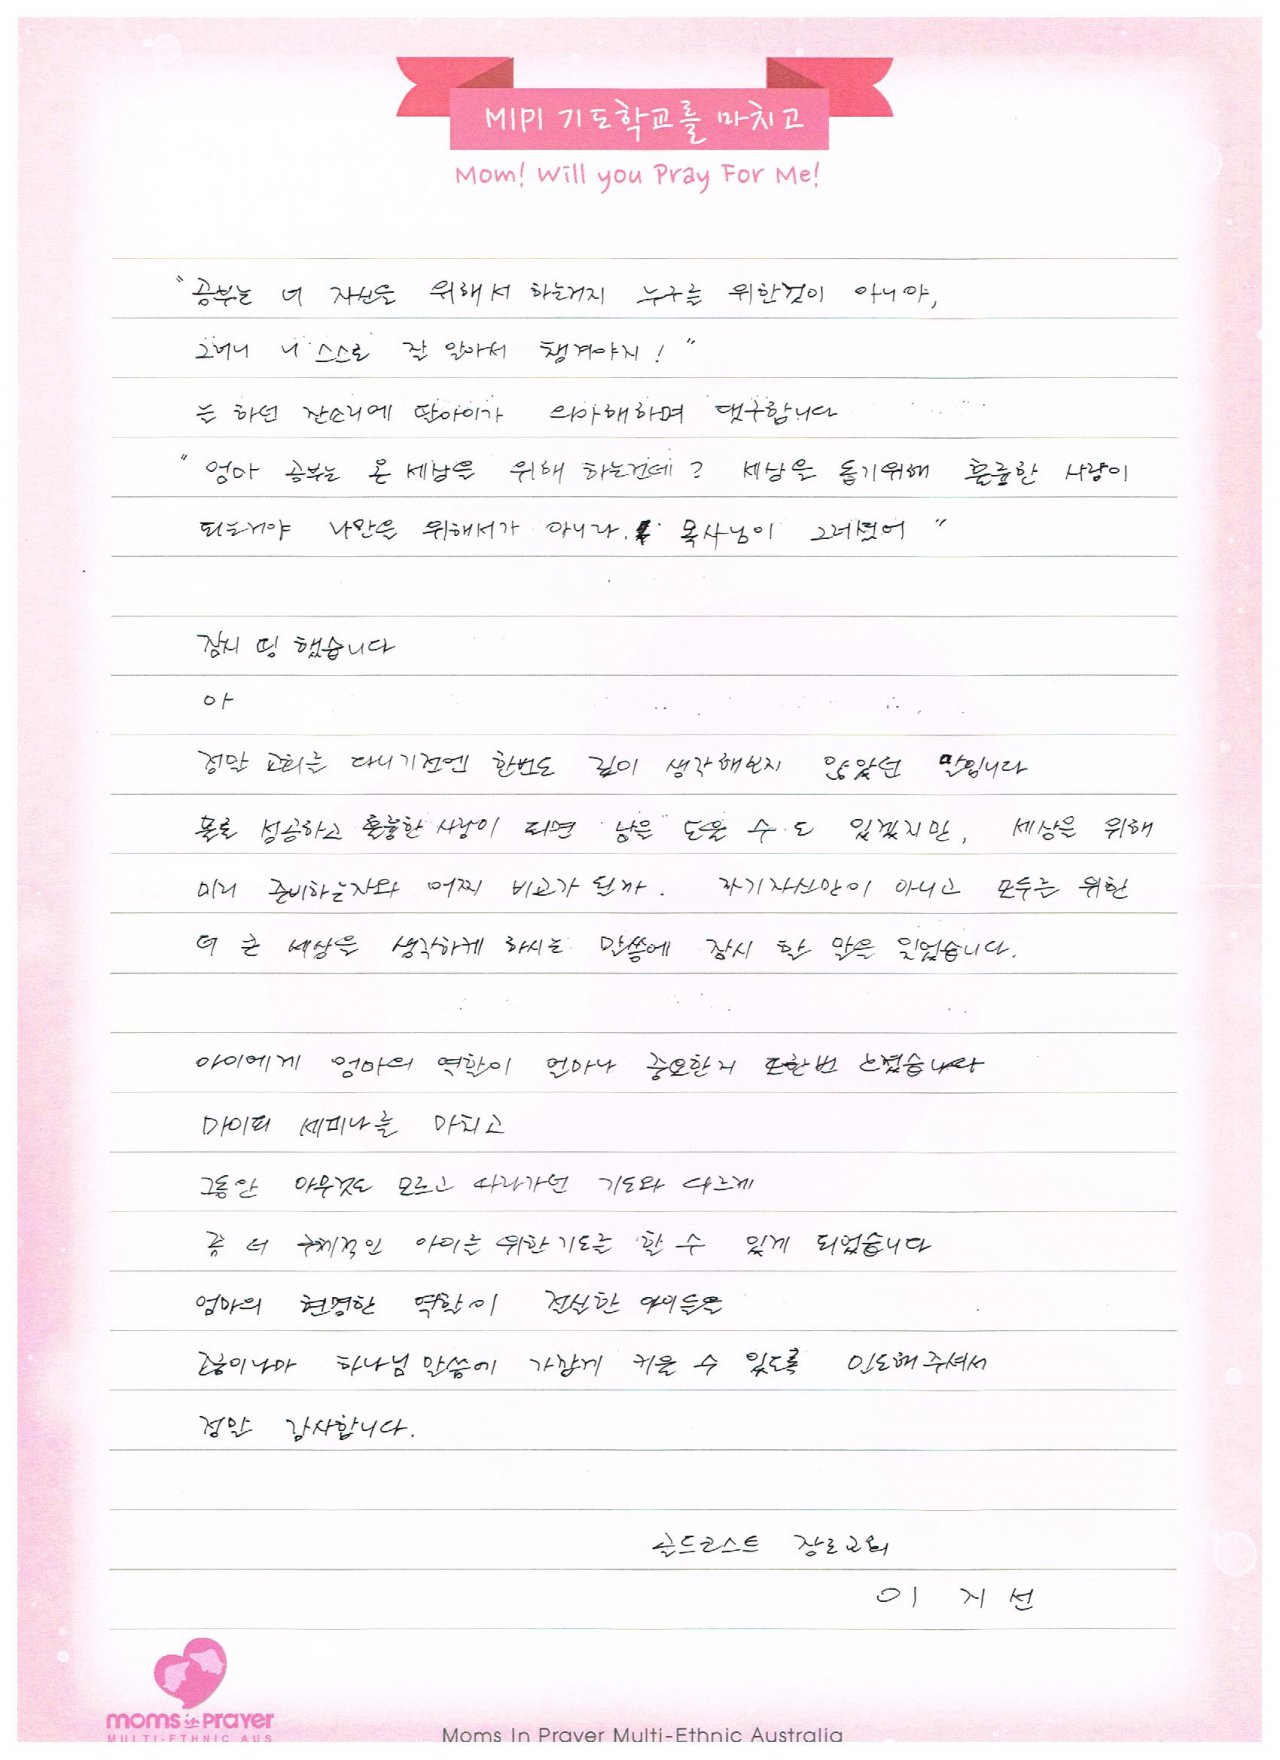 MIPI 기도학교를 마치고
Mom! Will you Pray For Me!
"공부는 너 자신을 위해서 하는거지 누구를 위한것이 아니야,
그러니 니 스스로 잘 알아서 챙겨야지! "
늘 하던 잔소리에 딸아이가 의아해하며 댓구합니다
"엄마 공부는 온 세상을 위해 하는건데? 세상을 돕기위해 훌륭한 사람이
되는거야 나만을 위해서가 아니라. 목사님이 그러셨어 "
잠시 띵 했습니다
아
정말 교회를 다니기전엔 한번도 깊이 생각해보지 않았던 말입니다
물론 성공하고 훌륭한 사람이 되면 남을 도울 수 도 있겠지만, 세상을 위해
미리 준비하는자와 어찌 비교가 될까. 자기자신만이 아니고 모두를 위한
더 큰 세상을 생각하게 하시는 말씀에 잠시 할 말을 잃었습니다.
아이에게 엄마의 역할이 얼마나 중요한지 또한번 느꼈습니다
마이피 세미나를 마치고
그동안 아무것도 모르고 따라가던 기도와 다르게
좀 더 구체적인 아이를 위한기도를 할 수 있게 되었습니다
엄마의 현명한 역할이 절실한 아이들을
조금이나마 하나님 말씀에 가깝게 키울 수 있도록 인도해주셔서
정말 감사합니다.
골드코스트 장로교회
이 지 선
moms in prayer
MULTI-ETHNIC AUS
Moms In Prayer Multi-Ethnic Australia